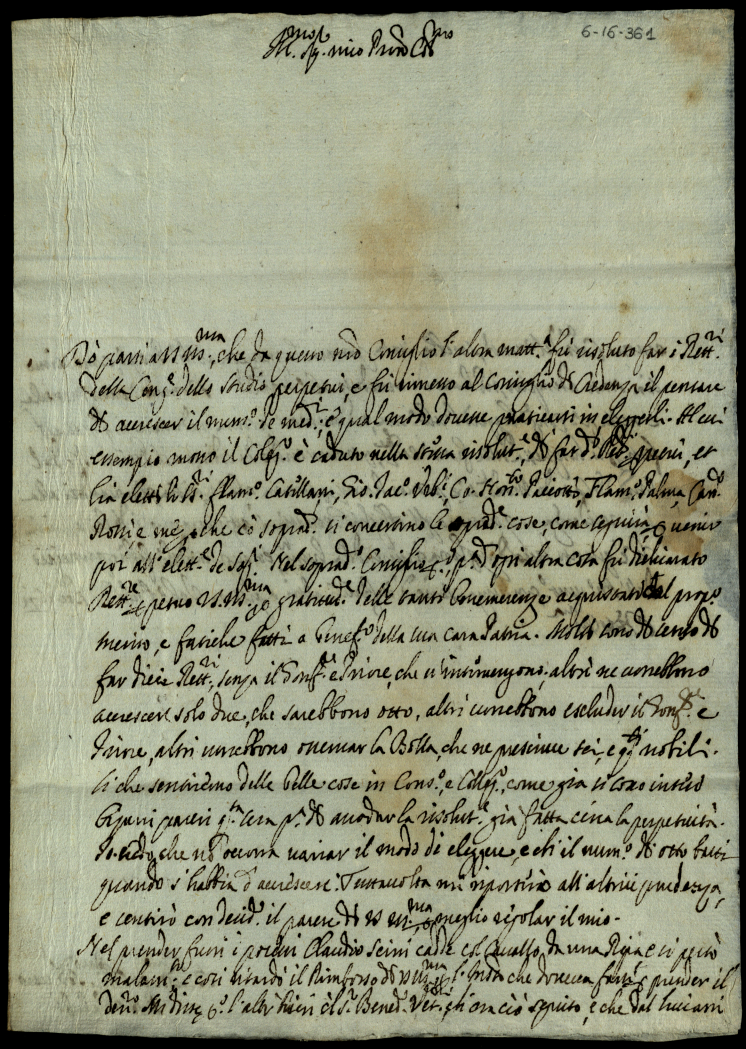 6-16-361
Ill.mo Sig. mio Pron Col.mo
Dò parte a VS Ill.ma, che da questo nro Consiglio l'altra matt.a fù risoluto far i Rett.ri
della Cong.e dello Studio perpetui, e fù rimesso al Consiglio di Credenza il pensare
di accrescer il num.o de med.i, e qual modo dovesse praticarsi in eleggerli. Al cui
essempio mosso il Colleg.o è caduto nella stessa risolut.e di far d.i Rett.ri perpetui, et
hà eletti li SS.ri Flam.o Catellani, Gio. Jac.o Co. Paciotto, Flam.o Palma, Cap.
Rossi, e me, che cò soprad. si concertino le soprad.e cose, come seguirà, venir
poi all'elett.e de Nel soprad.o Consiglio p.a d'ogni altra cosa fù dichiarato
Rett.re perpetuo VS Ill.ma gratitud.e delle tante benemerenze acquistate dal proprio
merito, e fatiche fatte a benef.o della sua cara Patria. Molti sono di senso di
far dieci Rett.ri, senza il Gonf.re e Priore, che v'intervengono, altri ne vorrebbono
accrescere solo due, che sarebbono otto, altri vorrebbono escluder il Gonf.re e
Priore, altri vorrebbono osservar la Bolla, che ne prescrive sei, e nobili.
Sì che sentiremo delle belle cose in Cons.o, e Colleg.o, come già si sono intesi
pareri q.ta sera p.a di annodar la risolut.e già fatta circa la perpetuità.
Io credo, che nò occorra variar il modo di eleggere, e che il num.o di otto basti
quando s'habbia d'accrescere. Tuttavolta mi riporterò all'altrui prudenza,
e sentirò con desid.o il parere di VS Ill.ma meglio regolar il mio.
Nel prender fuori i Claudio cadde col Cavallo da una Ripa e si pestò
malam.te, e così ritardò il Rimborso di VS Ill.ma che doveva farsi prender il
den.o. Mi disse l'altr'hieri il S.r Bened.o che era ciò seguito, e che dal